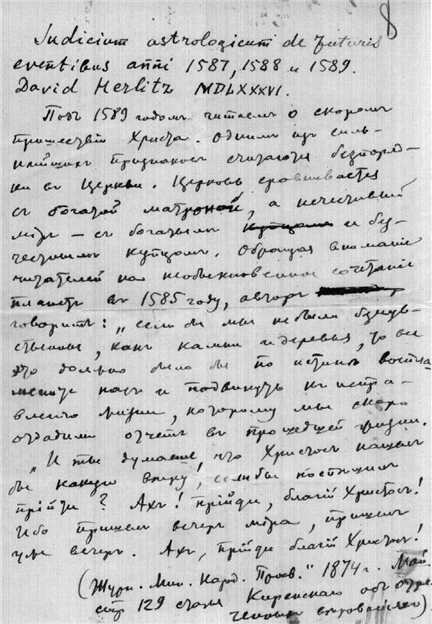 8
Judicium astrologicum de futuris
eventibus anni 1587, 1588 и 1589.
David Herlitz MDLXXXVI.
Подъ 1589 годомъ читаемъ о скоромъ
пришествіи Христа. Однимъ изъ силь-
нѣйшихъ признаковъ считаются безпоряд-
ки въ Церкви. Церковь сравнивается
съ богатой матроной, а нечестивый
міръ – съ богатымъ и без-
честнымъ купцомъ. Обращая вниманіе
читателей на необыкновенное сочетаніе
планетъ въ 1585 году, авторъ
говоритъ: „если бы мы не были безчув-
ственны, какъ камни и деревья, то все
это должно было бы по истинѣ
насъ и подвинуть къ испра-
вленію жизни, которому мы скоро
отдадимъ отчетъ въ прошедшей жизни.
„И ты думаешь, что Христосъ нашелъ
бы какую вѣру, если бы
прійти? Ахъ! прійди, благій Христосъ!
Ибо пришелъ вечеръ міра, пришелъ
уже вечеръ. Ахъ, прійди благій Христосъ!
(Журн. Мин. Народ. Просв." 1874 г. Май.
стр 129 статья Киренскаго объ
)